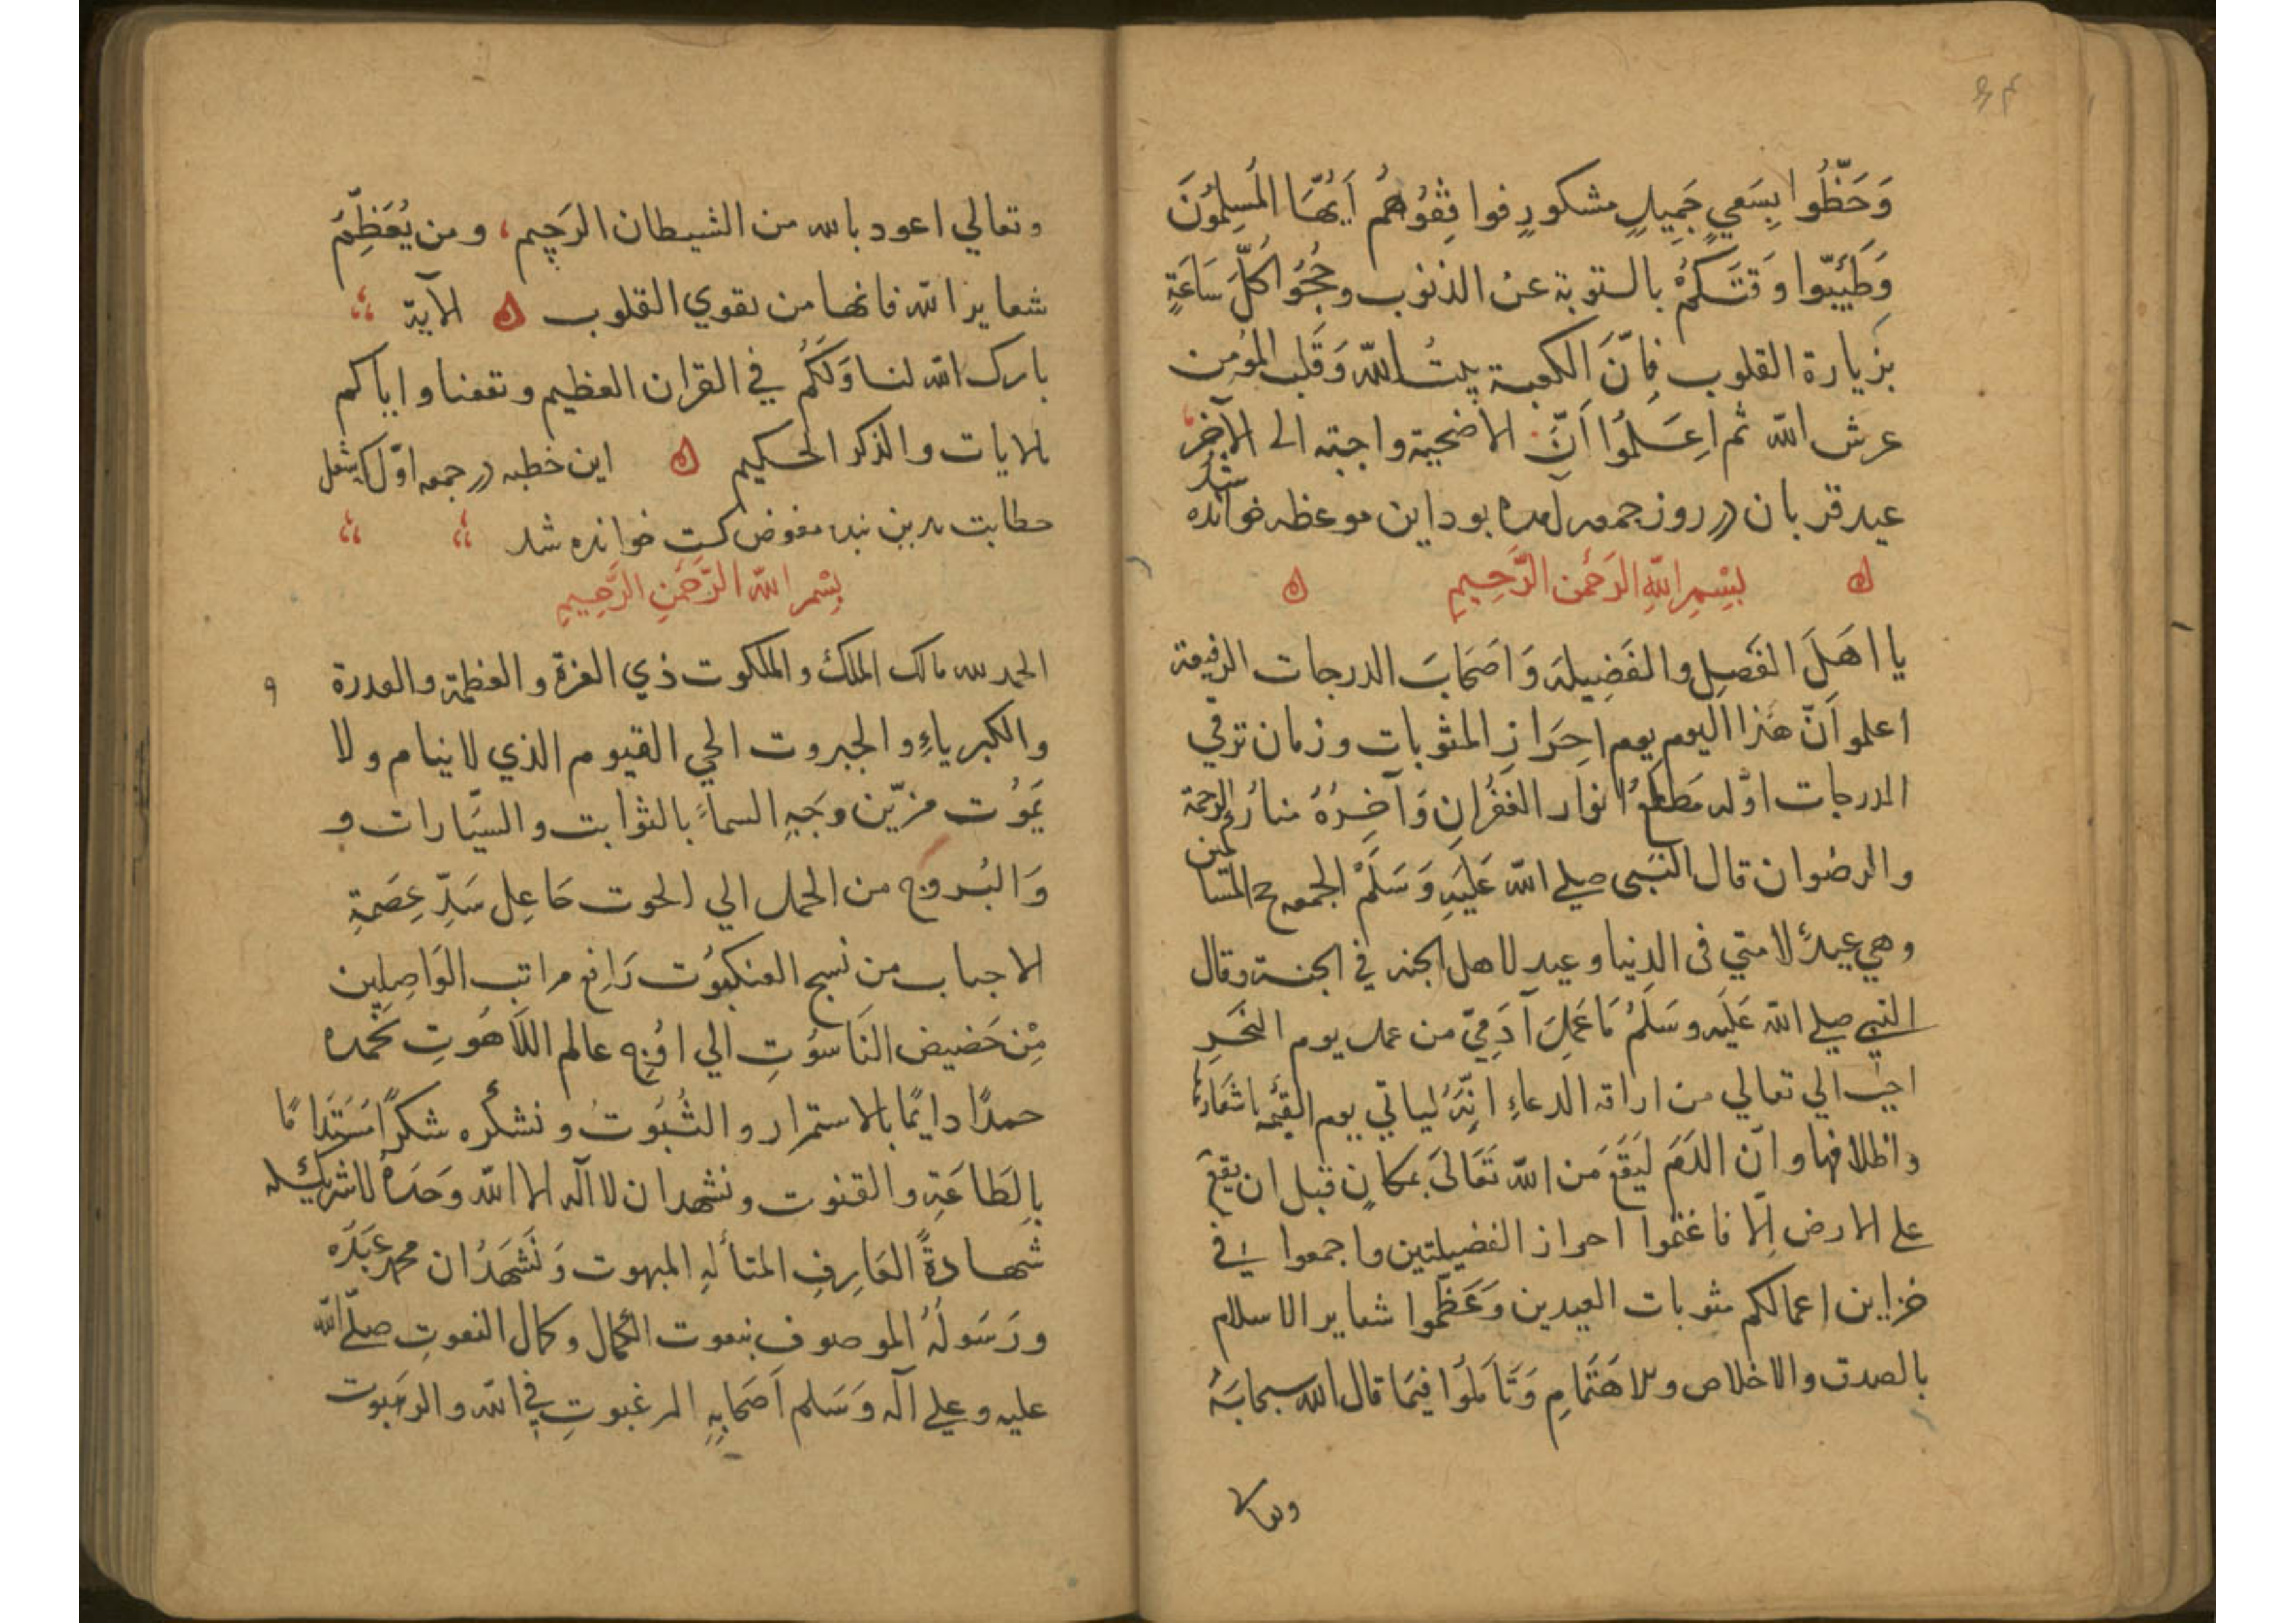 وَحَظُّوا بِسَعيٍ جَمِيلٍ مشكورٍ فوافِقُوهُم اَيُّهَا المُسلِمُونَ
وَطَيِّبّوا وَقتَكُمْ بالتوبة عن الذنوب وحُجُّوا كُلَّ سَاعَةٍ
بزيارة القلوب فِانَّ الكعبة بيتُ اللّه وَقَلب المؤمن
عرش اللّه ثم اعِلَمُوا اَنَّ الاضحية واجبته الى الآخِر
عيد قربان در روز جمعه آمده بود اين موعظه خوانده شد
بِسْمِ اللّهِ الرَحْمن الرَّحِيمِ
يا اهَلَ الفَصِل والفَضِيله وَاصَحَابَ الدرجات الرفيعة
اعلمو اَنّ هَذا اليوم يوم احِرَازِ المثوبات وزمان ترقي
الدرجات اوّله مَطلعُ انوار الغفُرانِ وَآخِرُهُ منارُ الرحمة
والرضوان قال النَبى صلي اللّه عَلَيَهِ وَسَلَمْ الجمعه حج المساكين
وهي عيدٌ لامتي فى الدنيا وعيد لاهل الجنه في الجنة وقال
النبي صلي اللّه عَلَيه وسَلَمُ مَا عَمِلَ آدَمِيّ من عمل يوم النحَرِ
احبّ الي تعالي من اراقه الدماءِ انِّهُ لياتي يوم القيمه باشعارها
واظلافها وانّ الدَمَ لَيَقَعَ من اللّه تَعَالىَ بمكانٍ قبل ان يقعَ
على الارض اِلّا فاغنموا احراز الفضيلتين واجمعوا في
خزاين اعمالكم مثوبات العيدين وَعَظّموا شعاير الاسلام
بالصدق والاخلاص وبلاهَتَمامِ وَتَأمَلُوا فيمَا قال الله سبحانَهُ
وتعالي
وتعالي اعوذ بالله من الشيطان الرَجيم، ومن يُعَظِّمَ
شعاير اللّه فانها من تقوي القلوب ه الآية
بارك اللّه لنا وَلَكُم في القران العظيم ونفعنا واياكم
بالايات والذكر الحكيم ه اين خطبه در جمعه اوّل كه شغل
خطابت بدين بنده مفوض كشت خوانده شد
بِسْمِ اللّه الرَّحمَنِ الرَّحِيمِ
الحمد لله مالك الملك والملكوت ذي العزة والعظمة والقدرة
والكبرياءِ والجبروت الحي القيوم الذي لا ينام ولا
يَمُوت مزيّن وَجَهِ السماءِ بالثوابت والسيّارات و
وَالبُروج من الحمل الي الحوت جَاعِل سَدِّ عِصَمةِ
الاحباب من نسج العنكبوُت رَافِع مراتب الوَاصِلِين
مِن حَضيض النَاسوُتِ الي اوُجِ عالم اللاَهُوتِ نحَمده
حمدًا دايمًا بالاستمرار والثُبُوت ونشكُره شكرًا مُسَتَدَامًا
بِالطَاعَةِ والقنوت ونشهد ان لا اله الا اللّه وَحَدَهُ لا شريك له
شَهادةً العَارِفِ المتألهِ المبهوت وَنَشَهَدُ ان محمد عَبَدُه
ورَسَولَهُ الموصوف بنعوت الكمال وكمال النعوتِ صلّى اللّه
عليه وعلي آله وَسَلم اَصَحَابِهِ المرغبوتِ فِي اللّه والرهَبوت